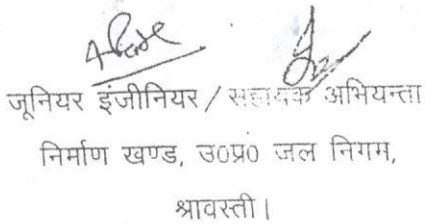 जूनियर इंजीनियर / सहायक अभियन्ता
निर्माण खण्ड, उ0प्र0 जल निगम,
श्रावस्ती।